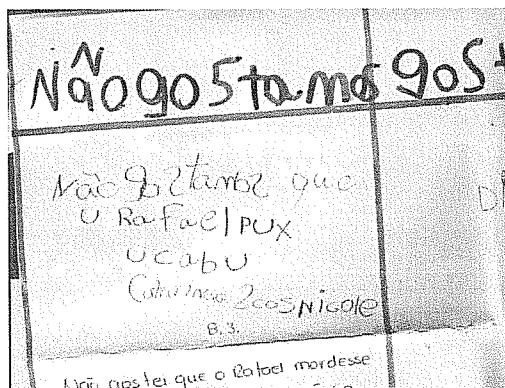 Não go5tamos gos
Não go2tamo2 que
u Rafael pux
u cabu
2cos Nicole
B.3.
Não gostei que o Rafael mordesse